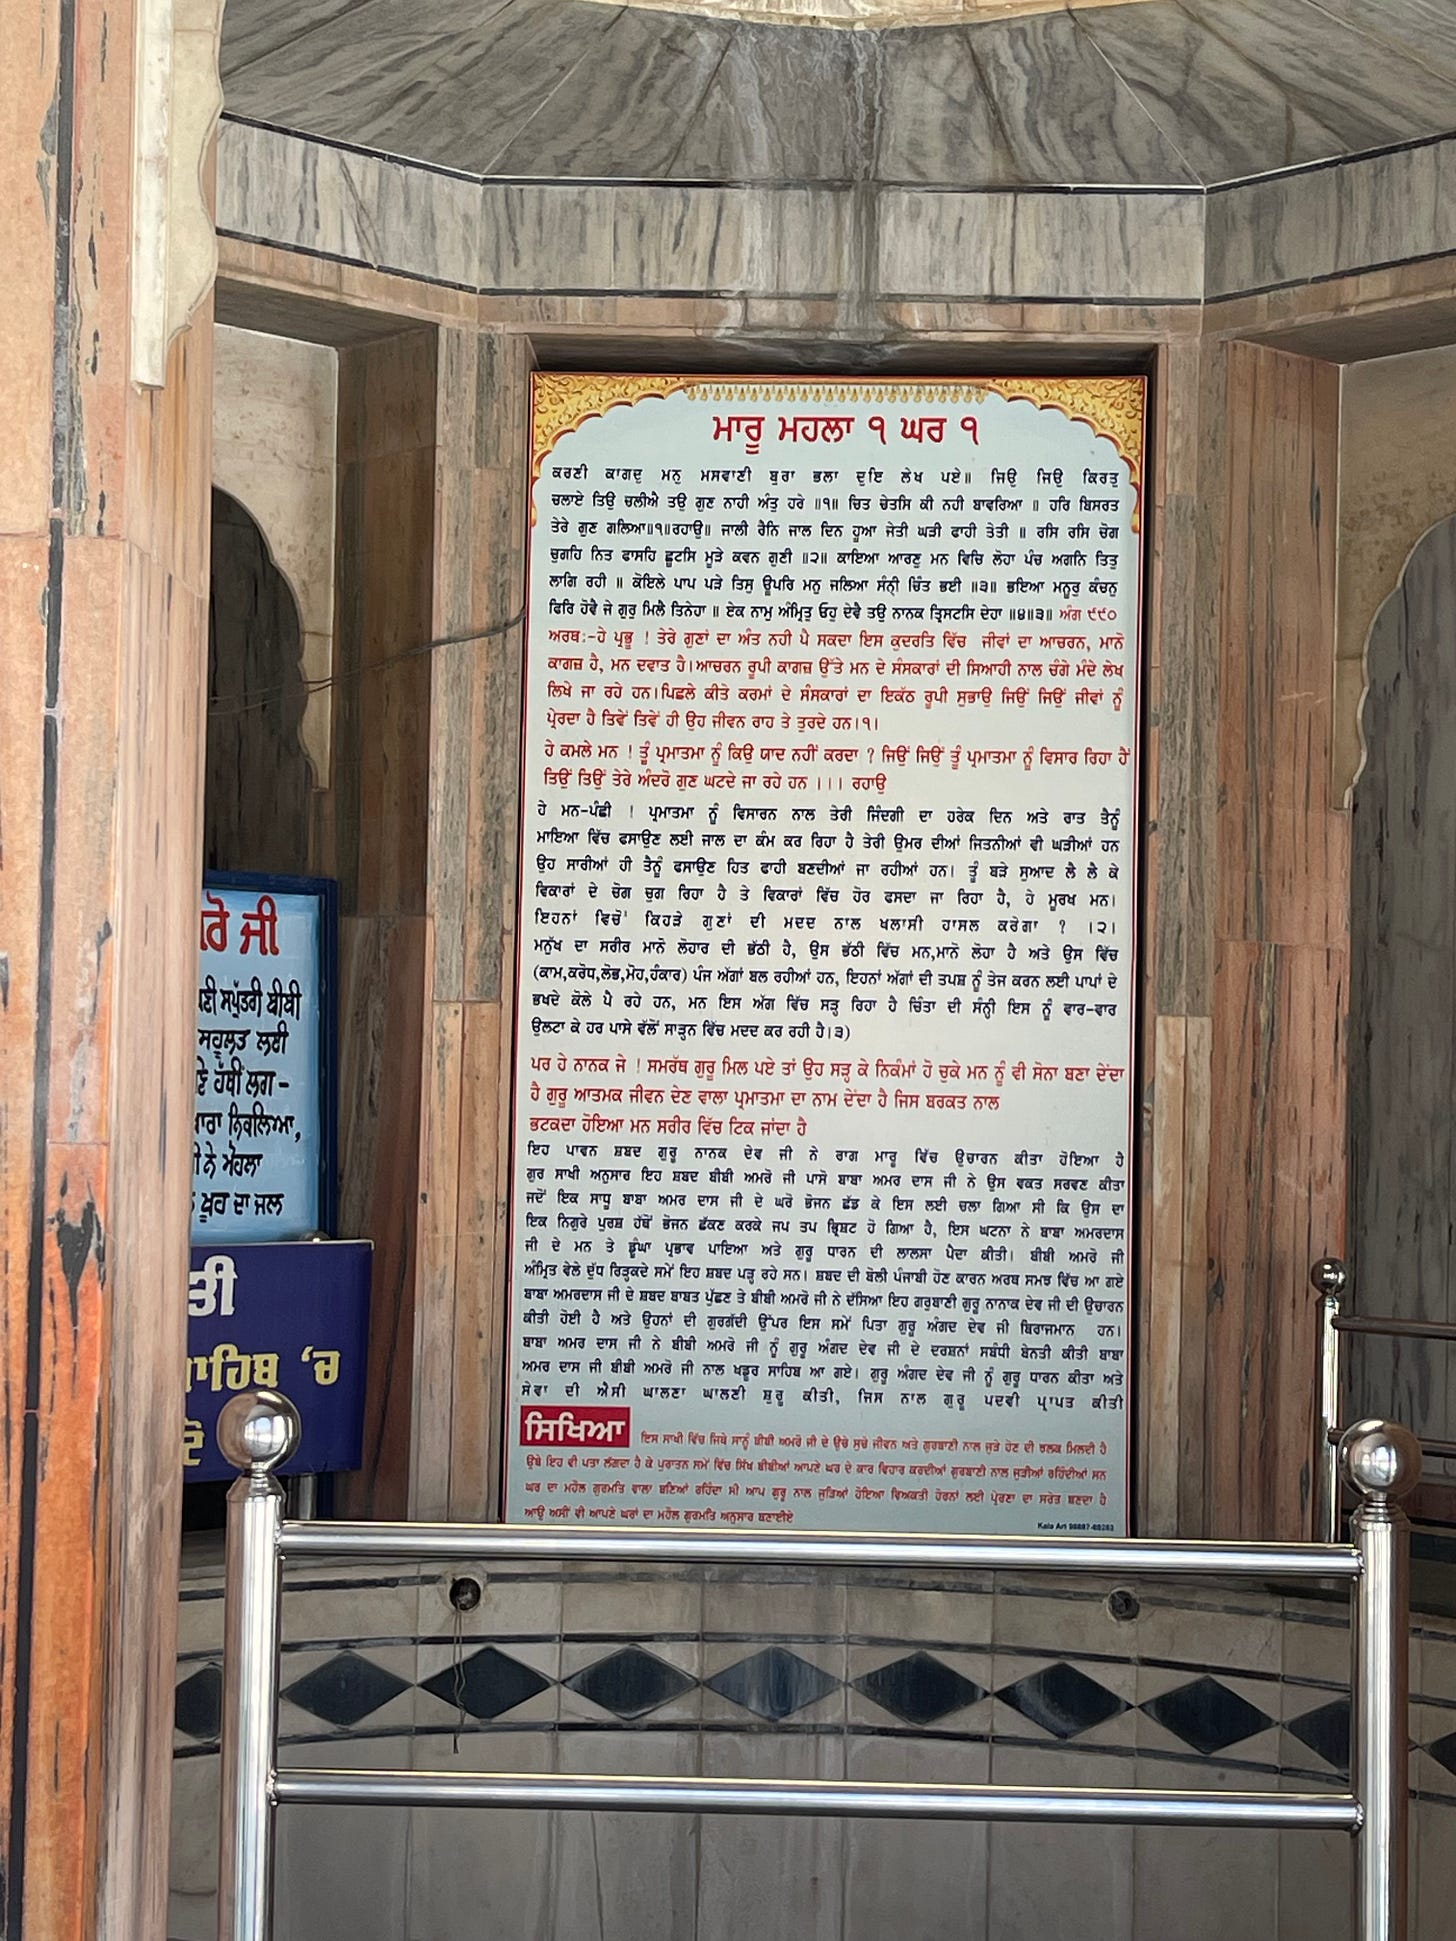 ਮਾਰੂ ਮਹਲਾ ੧ ਘਰ ੧
ਕਰਣੀ ਕਾਗਦੁ ਮਨੁ ਮਸਵਾਣੀ ਬੁਰਾ ਭਲਾ ਦੁਇ ਲੇਖ ਪਏ॥ ਜਿਉ ਜਿਉ ਕਿਰਤੁ
ਚਲਾਏ ਤਿਉ ਚਲੀਐ ਤਉ ਗੁਣ ਨਾਹੀ ਅੰਤੁ ਹਰੇ ॥੧॥ ਚਿਤ ਚੇਤਸਿ ਕੀ ਨਹੀ ਬਾਵਰਿਆ ॥ ਹਰਿ ਬਿਸਰਤ
ਤੇਰੇ ਗੁਣ ਗਲਿਆ॥੧॥ਰਹਾਉ॥ ਜਾਲੀ ਰੈਨਿ ਜਾਲ ਦਿਨ ਹੂਆ ਜੇਤੀ ਘੜੀ ਫਾਹੀ ਤੇਤੀ ॥ ਰਸਿ ਰਸਿ ਚੋਗ
ਚੁਗਹਿ ਨਿਤ ਫਾਸਹਿ ਛੂਟਸਿ ਮੂੜੇ ਕਵਨ ਗੁਣੀ ॥੨॥ ਕਾਇਆ ਆਰਣੁ ਮਨ ਵਿਚਿ ਲੋਹਾ ਪੰਚ ਅਗਨਿ ਤਿਤੁ
ਲਾਗਿ ਰਹੀ ॥ ਕੋਇਲੇ ਪਾਪ ਪੜੇ ਤਿਸੁ ਊਪਰਿ ਮਨੁ ਜਲਿਆ ਸੰਨ੍ਹੀ ਚਿੰਤ ਭਈ ॥੩॥ ਭਇਆ ਮਨੂਰੁ ਕੰਚਨੁ
ਫਿਰਿ ਹੋਵੈ ਜੇ ਗੁਰੁ ਮਿਲੈ ਤਿਨੇਹਾ ॥ ਏਕ ਨਾਮੁ ਅੰਮ੍ਰਿਤੁ ਓਹੁ ਦੇਵੈ ਤਉ ਨਾਨਕ ਤ੍ਰਿਸਟਸਿ ਦੇਹਾ ॥੪॥੩॥ ਅੰਗ ੯੯੦
ਅਰਥ:-ਹੇ ਪ੍ਰਭੂ ! ਤੇਰੇ ਗੁਣਾਂ ਦਾ ਅੰਤ ਨਹੀ ਪੈ ਸਕਦਾ ਇਸ ਕੁਦਰਤਿ ਵਿੱਚ ਜੀਵਾਂ ਦਾ ਆਚਰਨ, ਮਾਨੋ
ਕਾਗਜ਼ ਹੈ, ਮਨ ਦਵਾਤ ਹੈ।ਆਚਰਨ ਰੂਪੀ ਕਾਗਜ਼ ਉੱਤੇ ਮਨ ਦੇ ਸੰਸਕਾਰਾਂ ਦੀ ਸਿਆਹੀ ਨਾਲ ਚੰਗੇ ਮੰਦੇ ਲੇਖ
ਲਿਖੇ ਜਾ ਰਹੇ ਹਨ।ਪਿਛਲੇ ਕੀਤੇ ਕਰਮਾਂ ਦੇ ਸੰਸਕਾਰਾਂ ਦਾ ਇਕੱਠ ਰੂਪੀ ਸੁਭਾਉ ਜਿਉਂ ਜਿਉਂ ਜੀਵਾਂ ਨੂੰ
ਪ੍ਰੇਰਦਾ ਹੈ ਤਿਵੇਂ ਤਿਵੇਂ ਹੀ ਉਹ ਜੀਵਨ ਰਾਹ ਤੇ ਤੁਰਦੇ ਹਨ।੧।
ਹੇ ਕਮਲੇ ਮਨ ! ਤੂੰ ਪ੍ਰਮਾਤਮਾ ਨੂੰ ਕਿਉ ਯਾਦ ਨਹੀਂ ਕਰਦਾ ? ਜਿਉਂ ਜਿਉਂ ਤੂੰ ਪ੍ਰਮਾਤਮਾ ਨੂੰ ਵਿਸਾਰ ਰਿਹਾ ਹੈਂ
ਤਿਉਂ ਤਿਉਂ ਤੇਰੇ ਅੰਦਰੋ ਗੁਣ ਘਟਦੇ ਜਾ ਰਹੇ ਹਨ ।।। ਰਹਾਉ
ਹੇ ਮਨ-ਪੰਛੀ ! ਪ੍ਰਮਾਤਮਾ ਨੂੰ ਵਿਸਾਰਨ ਨਾਲ ਤੇਰੀ ਜਿੰਦਗੀ ਦਾ ਹਰੇਕ ਦਿਨ ਅਤੇ ਰਾਤ ਤੈਨੂੰ
ਮਾਇਆ ਵਿੱਚ ਫਸਾਉਣ ਲਈ ਜਾਲ ਦਾ ਕੰਮ ਕਰ ਰਿਹਾ ਹੈ ਤੇਰੀ ਉਮਰ ਦੀਆਂ ਜਿਤਨੀਆਂ ਵੀ ਘੜੀਆਂ ਹਨ
ਉਹ ਸਾਰੀਆਂ ਹੀ ਤੈਨੂੰ ਫਸਾਉਣ ਹਿਤ ਫਾਹੀ ਬਣਦੀਆਂ ਜਾ ਰਹੀਆਂ ਹਨ। ਤੂੰ ਬੜੇ ਸੁਆਦ ਲੈ ਲੈ ਕੇ
ਵਿਕਾਰਾਂ ਦੇ ਚੋਗ ਚੁਗ ਰਿਹਾ ਹੈ ਤੇ ਵਿਕਾਰਾਂ ਵਿੱਚ ਹੋਰ ਫਸਦਾ ਜਾ ਰਿਹਾ ਹੈ, ਹੇ ਮੂਰਖ ਮਨ।
ਇਹਨਾਂ ਵਿਚੋਂ ਕਿਹੜੇ ਗੁਣਾਂ ਦੀ ਮਦਦ ਨਾਲ ਖਲਾਸੀ ਹਾਸਲ ਕਰੇਗਾ ? ।੨।
ਮਨੁੱਖ ਦਾ ਸਰੀਰ ਮਾਨੋ ਲੋਹਾਰ ਦੀ ਭੱਠੀ ਹੈ, ਉਸ ਭੱਠੀ ਵਿੱਚ ਮਨ,ਮਾਨੋ ਲੋਹਾ ਹੈ ਅਤੇ ਉਸ ਵਿੱਚ
(ਕਾਮ,ਕਰੋਧ,ਲੋਭ,ਮੋਹ,ਹੰਕਾਰ) ਪੰਜ ਅੱਗਾਂ ਬਲ ਰਹੀਆਂ ਹਨ, ਇਹਨਾਂ ਅੱਗਾਂ ਦੀ ਤਪਸ਼ ਨੂੰ ਤੇਜ ਕਰਨ ਲਈ ਪਾਪਾਂ ਦੇ
ਭਖਦੇ ਕੋਲੇ ਪੈ ਰਹੇ ਹਨ, ਮਨ ਇਸ ਅੱਗ ਵਿੱਚ ਸੜ੍ਹ ਰਿਹਾ ਹੈ ਚਿੰਤਾ ਦੀ ਸੰਨ੍ਹੀ ਇਸ ਨੂੰ ਵਾਰ-ਵਾਰ
ਉਲਟਾ ਕੇ ਹਰ ਪਾਸੇ ਵੱਲੋਂ ਸਾੜ੍ਹਨ ਵਿੱਚ ਮਦਦ ਕਰ ਰਹੀ ਹੈ।੩)
ਪਰ ਹੇ ਨਾਨਕ ਜੇ ! ਸਮਰੱਥ ਗੁਰੂ ਮਿਲ ਪਏ ਤਾਂ ਉਹ ਸੜ੍ਹ ਕੇ ਨਿਕੰਮਾਂ ਹੋ ਚੁਕੇ ਮਨ ਨੂੰ ਵੀ ਸੋਨਾ ਬਣਾ ਦੇਂਦਾ
ਹੈ ਗੁਰੂ ਆਤਮਕ ਜੀਵਨ ਦੇਣ ਵਾਲਾ ਪ੍ਰਮਾਤਮਾ ਦਾ ਨਾਮ ਦੇਂਦਾ ਹੈ ਜਿਸ ਬਰਕਤ ਨਾਲ
ਭਟਕਦਾ ਹੋਇਆ ਮਨ ਸਰੀਰ ਵਿੱਚ ਟਿਕ ਜਾਂਦਾ ਹੈ
ਇਹ ਪਾਵਨ ਸ਼ਬਦ ਗੁਰੂ ਨਾਨਕ ਦੇਵ ਜੀ ਨੇ ਰਾਗ ਮਾਰੂ ਵਿੱਚ ਉਚਾਰਨ ਕੀਤਾ ਹੋਇਆ ਹੈ
ਗੁਰ ਸਾਖੀ ਅਨੁਸਾਰ ਇਹ ਸ਼ਬਦ ਬੀਬੀ ਅਮਰੋ ਜੀ ਪਾਸੋ ਬਾਬਾ ਅਮਰ ਦਾਸ ਜੀ ਨੇ ਉਸ ਵਕਤ ਸਰਵਣ ਕੀਤਾ
ਜਦੋਂ ਇਕ ਸਾਧੂ ਬਾਬਾ ਅਮਰ ਦਾਸ ਜੀ ਦੇ ਘਰੋ ਭੋਜਨ ਛੱਡ ਕੇ ਇਸ ਲਈ ਚਲਾ ਗਿਆ ਸੀ ਕਿ ਉਸ ਦਾ
ਇਕ ਨਿਗੁਰੇ ਪੁਰਸ਼ ਹੱਥੋਂ ਭੋਜਨ ਛੱਕਣ ਕਰਕੇ ਜਪ ਤਪ ਭ੍ਰਿਸ਼ਟ ਹੋ ਗਿਆ ਹੈ, ਇਸ ਘਟਨਾ ਨੇ ਬਾਬਾ ਅਮਰਦਾਸ
ਜੀ ਦੇ ਮਨ ਤੇ ਡੂੰਘਾ ਪ੍ਰਭਾਵ ਪਾਇਆ ਅਤੇ ਗੁਰੂ ਧਾਰਨ ਦੀ ਲਾਲਸਾ ਪੈਦਾ ਕੀਤੀ। ਬੀਬੀ ਅਮਰੋ ਜੀ
ਅੰਮ੍ਰਿਤ ਵੇਲੇ ਦੁੱਧ ਰਿੜ੍ਹਕਦੇ ਸਮੇਂ ਇਹ ਸ਼ਬਦ ਪੜ੍ਹ ਰਹੇ ਸਨ। ਸ਼ਬਦ ਦੀ ਬੋਲੀ ਪੰਜਾਬੀ ਹੋਣ ਕਾਰਨ ਅਰਥ ਸਮਝ ਵਿੱਚ ਆ ਗਏ
ਬਾਬਾ ਅਮਰਦਾਸ ਜੀ ਦੇ ਸ਼ਬਦ ਬਾਬਤ ਪੁੱਛਣ ਤੇ ਬੀਬੀ ਅਮਰੋ ਜੀ ਨੇ ਦੱਸਿਆ ਇਹ ਗਰੁਬਾਣੀ ਗੁਰੂ ਨਾਨਾਕ ਦੇਵ ਜੀ ਦੀ ਉਚਾਰਨ
ਕੀਤੀ ਹੋਈ ਹੈ ਅਤੇ ਉਹਨਾਂ ਦੀ ਗੁਰਗੱਦੀ ਉੱਪਰ ਇਸ ਸਮੇਂ ਪਿਤਾ ਗੁਰੂ ਅੰਗਦ ਦੇਵ ਜੀ ਬਿਰਾਜਮਾਨ ਹਨ।
ਬਾਬਾ ਅਮਰ ਦਾਸ ਜੀ ਨੇ ਬੀਬੀ ਅਮਰੋ ਜੀ ਨੂੰ ਗੁਰੂ ਅੰਗਦ ਦੇਵ ਜੀ ਦੇ ਦਰਸ਼ਨਾਂ ਸਬੰਧੀ ਬੇਨਤੀ ਕੀਤੀ ਬਾਬਾ
ਅਮਰ ਦਾਸ ਜੀ ਬੀਬੀ ਅਮਰੋ ਜੀ ਨਾਲ ਖਡੂਰ ਸਾਹਿਬ ਆ ਗਏ। ਗੁਰੂ ਅੰਗਦ ਦੇਵ ਜੀ ਨੂੰ ਗੁਰੂ ਧਾਰਨ ਕੀਤਾ ਅਤੇ
ਸੇਵਾ ਦੀ ਐਸੀ ਘਾਲਣਾ ਘਾਲਣੀ ਸ਼ੁਰੂ ਕੀਤੀ, ਜਿਸ ਨਾਲ ਗੁਰੂ ਪਦਵੀ ਪ੍ਰਾਪਤ ਕੀਤੀ
ਸਿਖਿਆ ਇਸ ਸਾਖੀ ਵਿੱਚ ਜਿਥੇ ਸਾਨੂੰ ਬੀਬੀ ਅਮਰੋ ਜੀ ਦੇ ਉਚੇ ਸੁਚੇ ਜੀਵਨ ਅਤੇ ਗੁਰਬਾਣੀ ਨਾਲ ਜੁੜੇ ਹੋਣ ਦੀ ਝਲਕ ਮਿਲਦੀ ਹੈ
ਉਥੇ ਇਹ ਵੀ ਪਤਾ ਲੱਗਦਾ ਹੈ ਕੇ ਪੁਰਾਤਨ ਸਮੇਂ ਵਿੱਚ ਸਿੱਖ ਬੀਬੀਆਂ ਆਪਣੇ ਘਰ ਦੇ ਕਾਰ ਵਿਹਾਰ ਕਰਦੀਆਂ ਗੁਰਬਾਣੀ ਨਾਲ ਜੁੜੀਆਂ ਰਹਿੰਦੀਆਂ ਸਨ
ਘਰ ਦਾ ਮਹੌਲ ਗੁਰਮਤਿ ਵਾਲਾ ਬਣਿਆਂ ਰਹਿੰਦਾ ਸੀ ਆਪ ਗੁਰੂ ਨਾਲ ਜੁੜਿਆਂ ਹੋਇਆ ਵਿਅਕਤੀ ਹੋਰਨਾਂ ਲਈ ਪ੍ਰੇਰਣਾ ਦਾ ਸਰੋਤ ਬਣਦਾ ਹੈ
ਆਉ ਅਸੀਂ ਵੀ ਆਪਣੇ ਘਰਾਂ ਦਾ ਮਹੌਲ ਗੁਰਮਤਿ ਅਨੁਸਾਰ ਬਣਾਈਏ
Kala Art
ਰੋ ਜੀ
ਸਪੁੱਤਰੀ ਬੀਬੀ
ਸਹੂਲਤ ਲਈ
ਹੱਥੀਂ ਲਗ-
ਨਿਕਲਿਆ,
ਨੇ ਮੋਹਲਾ
ਖੂਹ ਦਾ ਜਲ
ਤੀ
ਾਹਿਬ 'ਚ